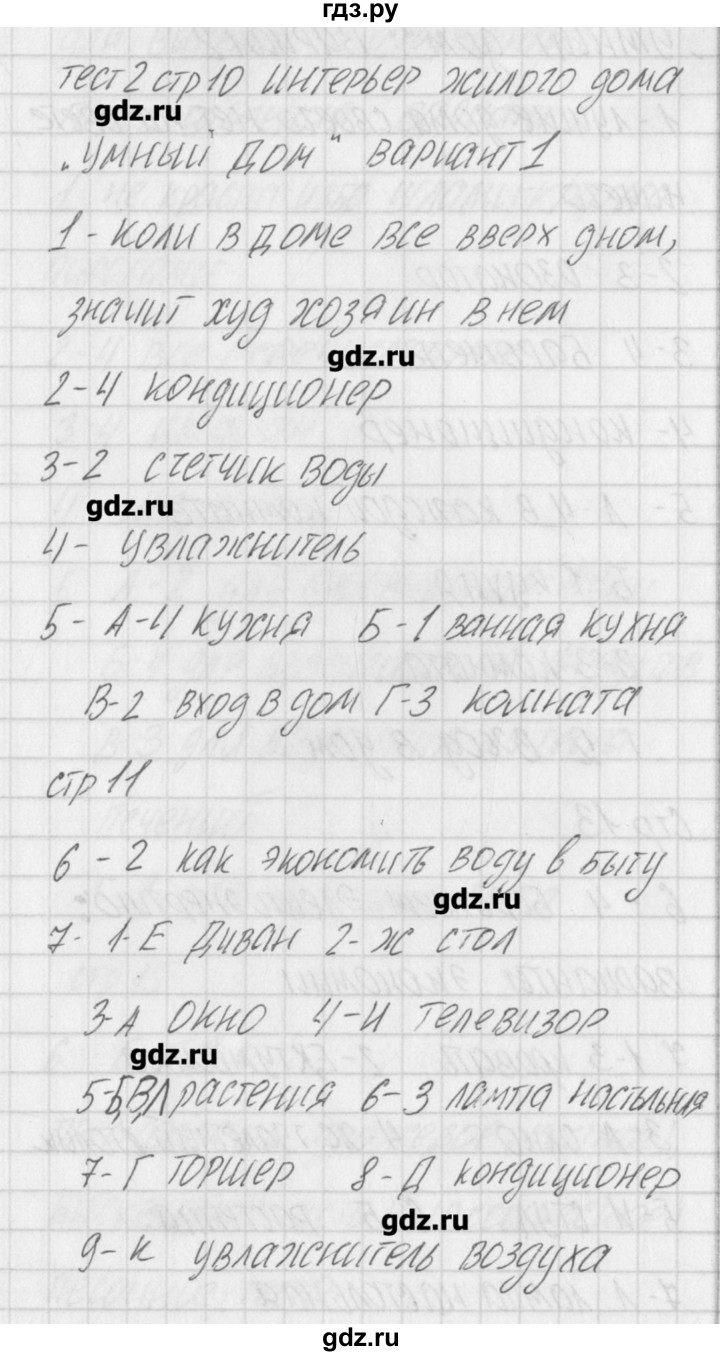 гдз.ру
тест2 стр10 интерьер жилого дома
gdz.ru
„Умный дом“ вариант 1
1 - коли в доме все вверх дном,
значит худ хозяин в нем
gdz.ru
2-4 кондиционер
3-2 счетчик воды
gdz.ru
4- увлажнитель
5- А-4 кухня Б-1 ванная кухня
В-2 вход в дом Г-3 комната
стр 11
6 - 2 как экономить воду в быту
gdz.ru
7- 1-Е Диван 2-ж стол
3-А окно 4-И телевизор
gdz.ru
5-Б,В,Л растения 6-З лампа настольная
7-Г торшер 8-Д кондиционер
gdz.ru
9-к увлажнитель воздуха
gdz.ru